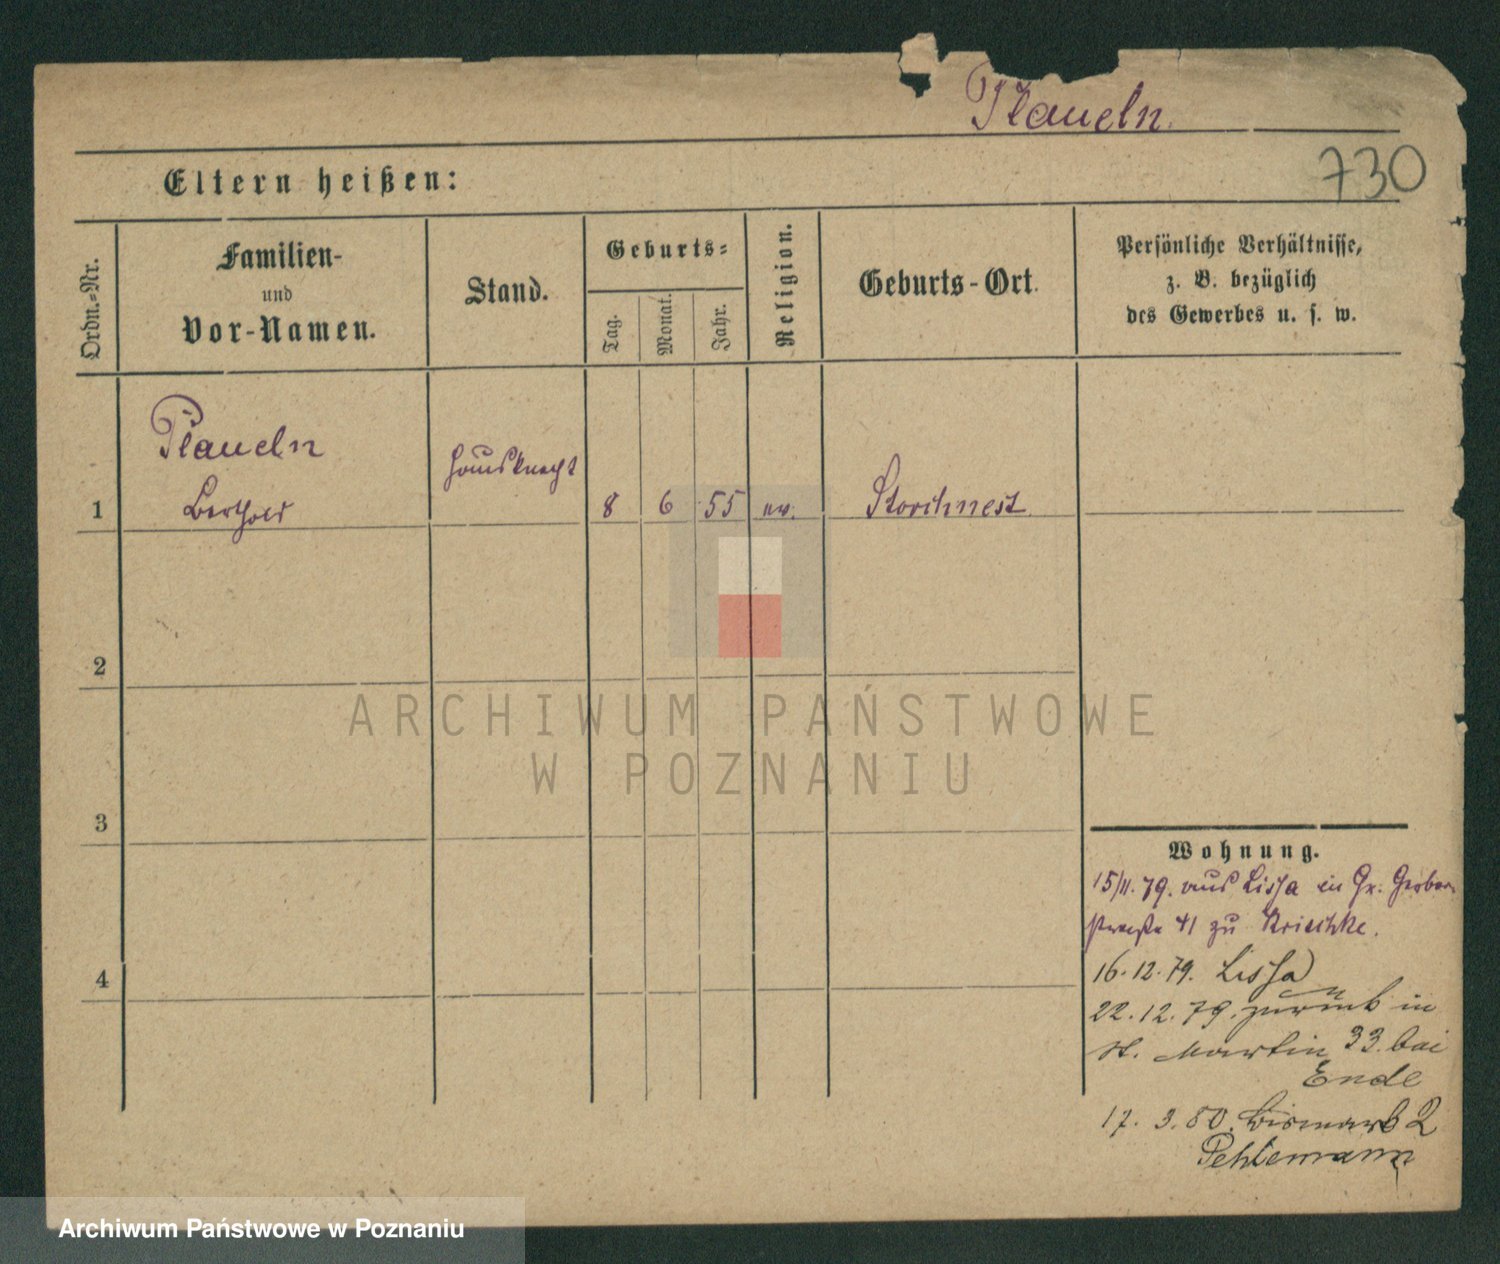 Plaueln
730
Eltern heißen:
Ordn.-Nr.
Familien-
und
Vor-Namen.
Stand.
Geburts-
Tag.
Monat.
Jahr.
Religion.
Geburts-Ort.
Persönliche Verhältnisse,
z. B. bezüglich
des Gewerbes u. s. w.
1
Plaueln
Berthold
Hausknecht
8
6
55
ev.
Storchnest
2
3
4
ARCHIWUM PAŃSTWOWE
W POZNANIU
Wohnung.
15/11. 79. aus Lissa in Gr. Gerber-
straße 41 zu Krischke.
16.12.79. Lissa
22.12.79. zurück in
St. Martin 33. bei
Ende
17. 3. 80. Bismark 2
Pehlemann
Archiwum Państwowe w Poznaniu